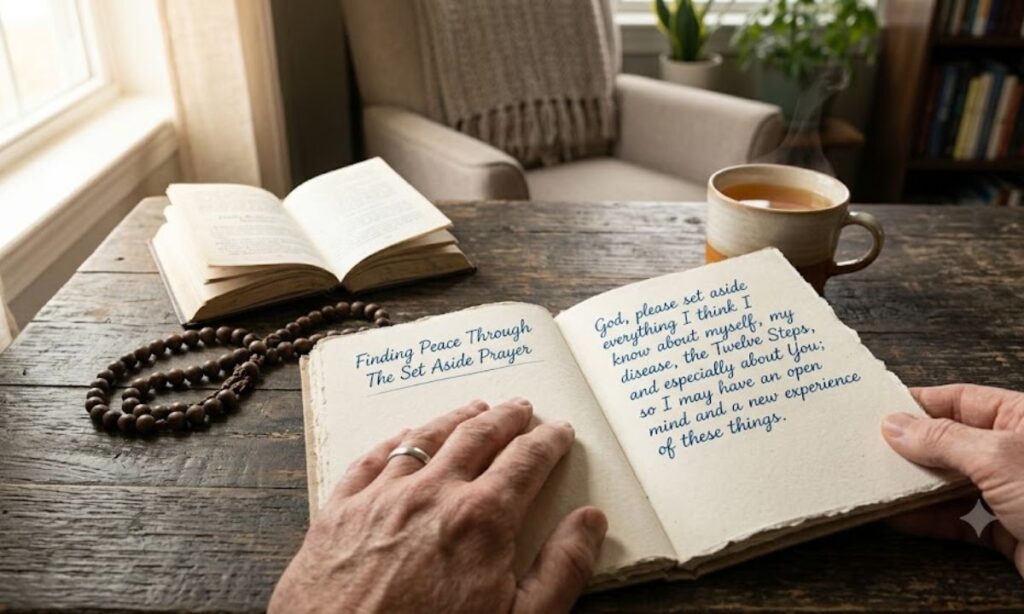 Finding Peace Through
The Set Aside Prayer
God, please set aside
everything I think I
know about myself, my
disease, the Twelve Steps,
and especially about You;
so I may have an open
mind and a new experience
of these things.